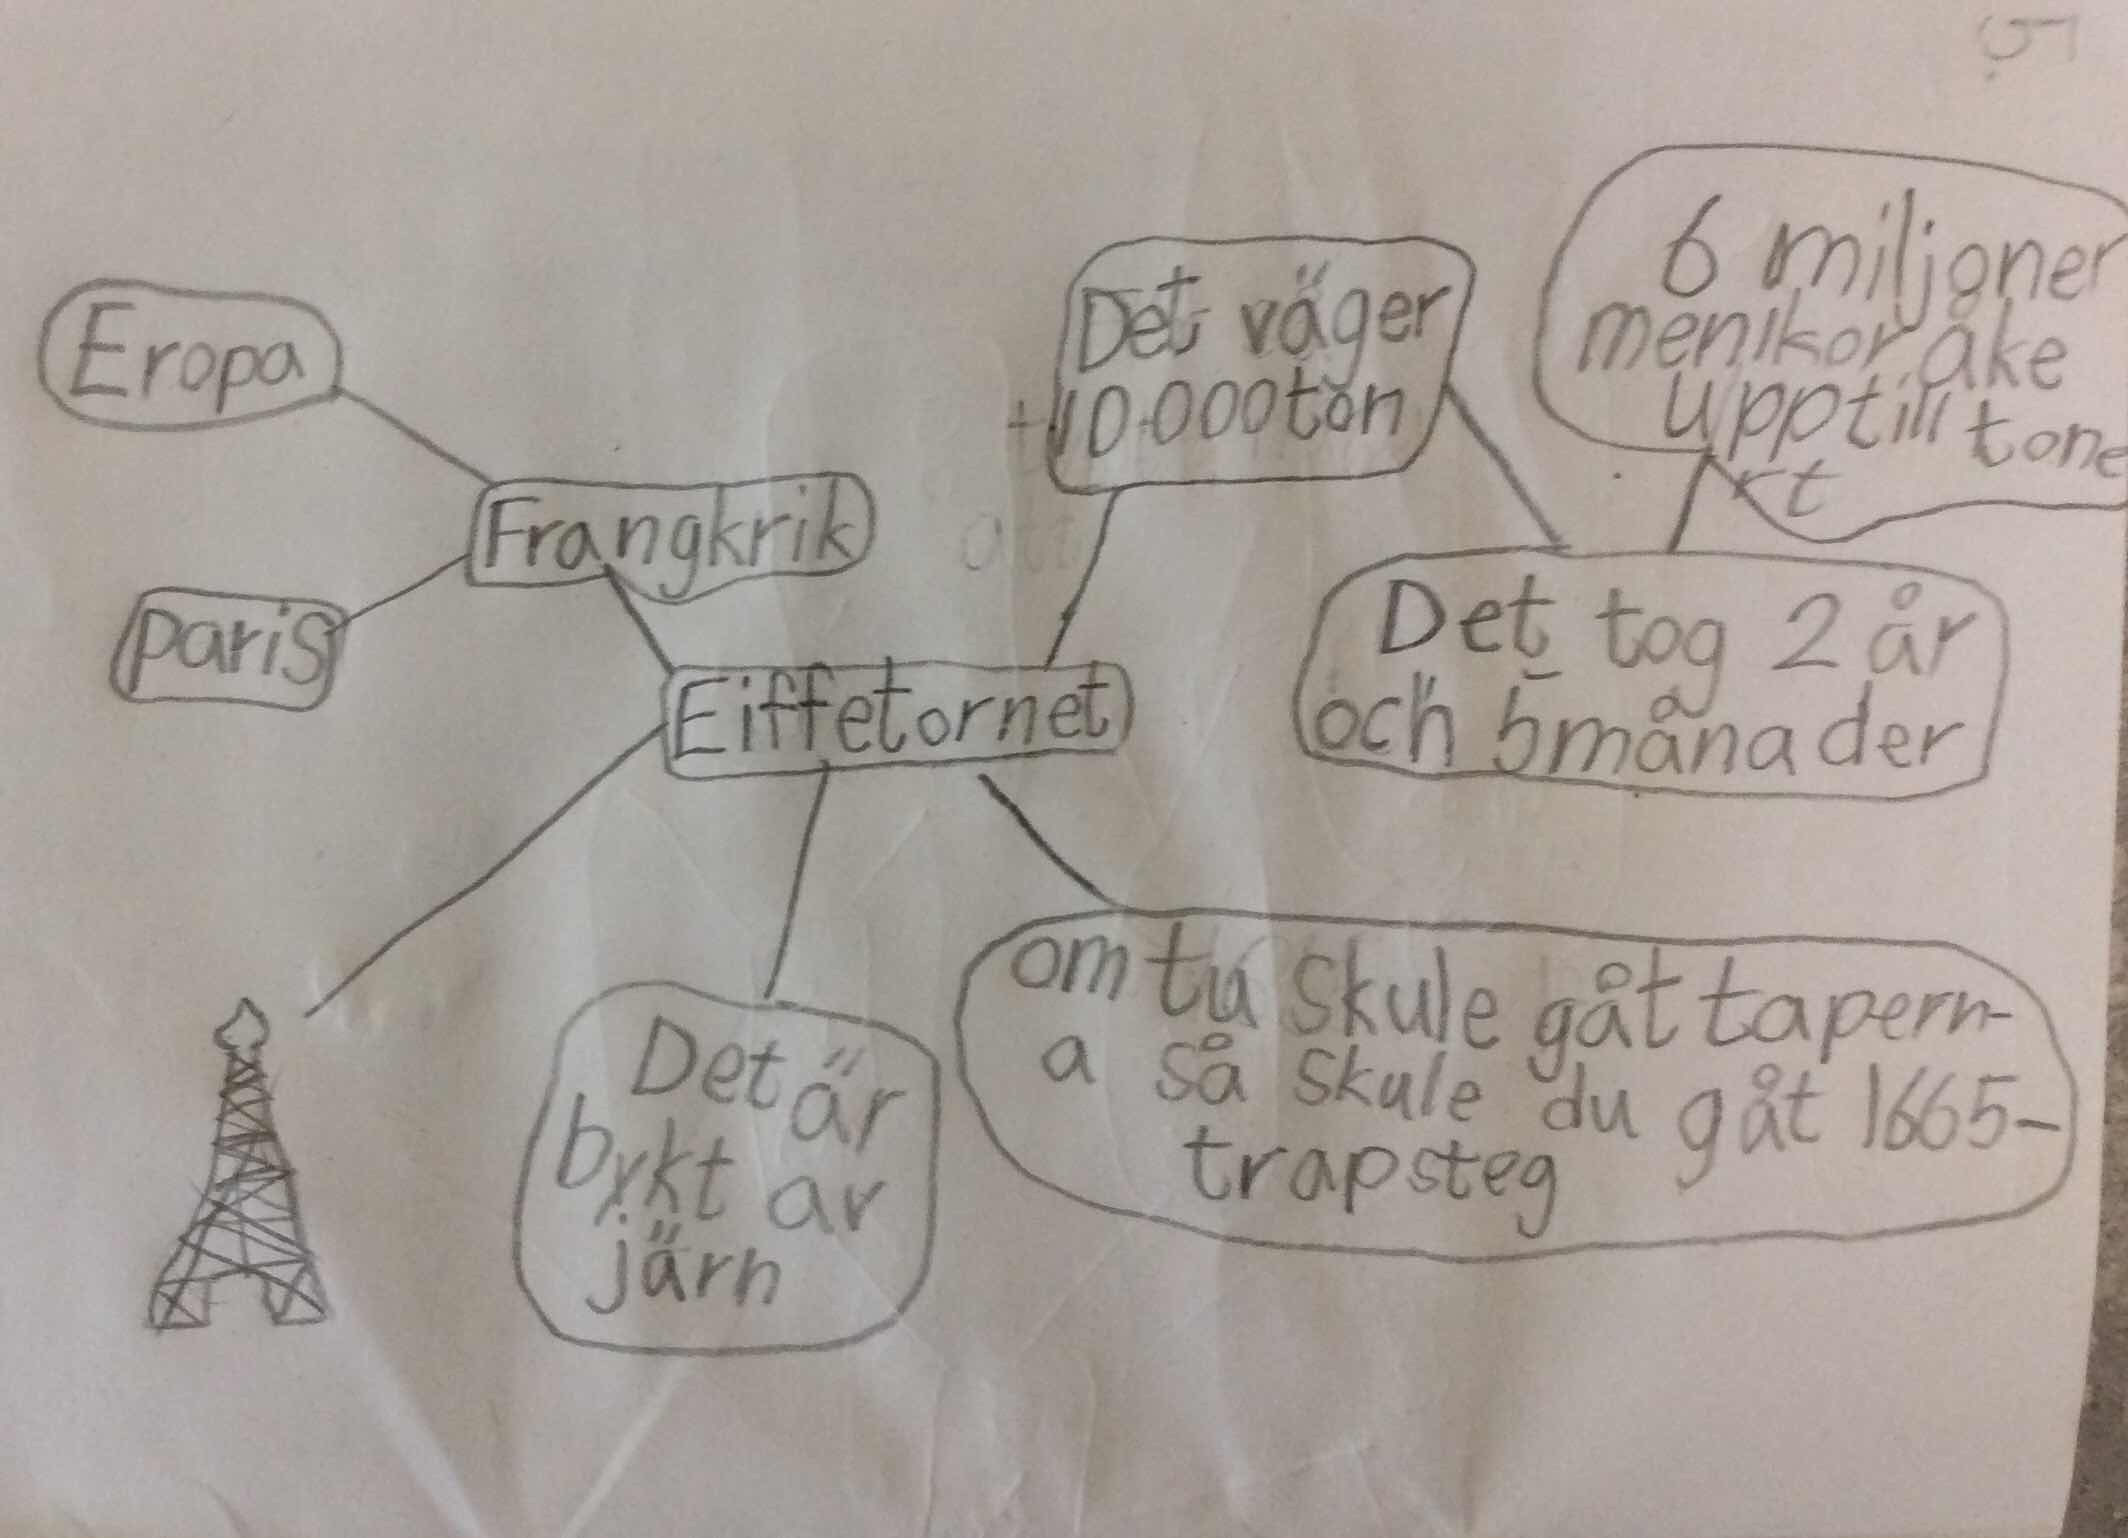 5
Eropa
Frangkrik
paris
Eiffetornet
Det väger
10.000 ton
6 miljoner
menikor åke
upptill tone
rt
Det tog 2 år
och 5månader
att
Det är
bykt av
järn
om tu skule gåt tapern-
a så skule du gåt 1665-
trapsteg